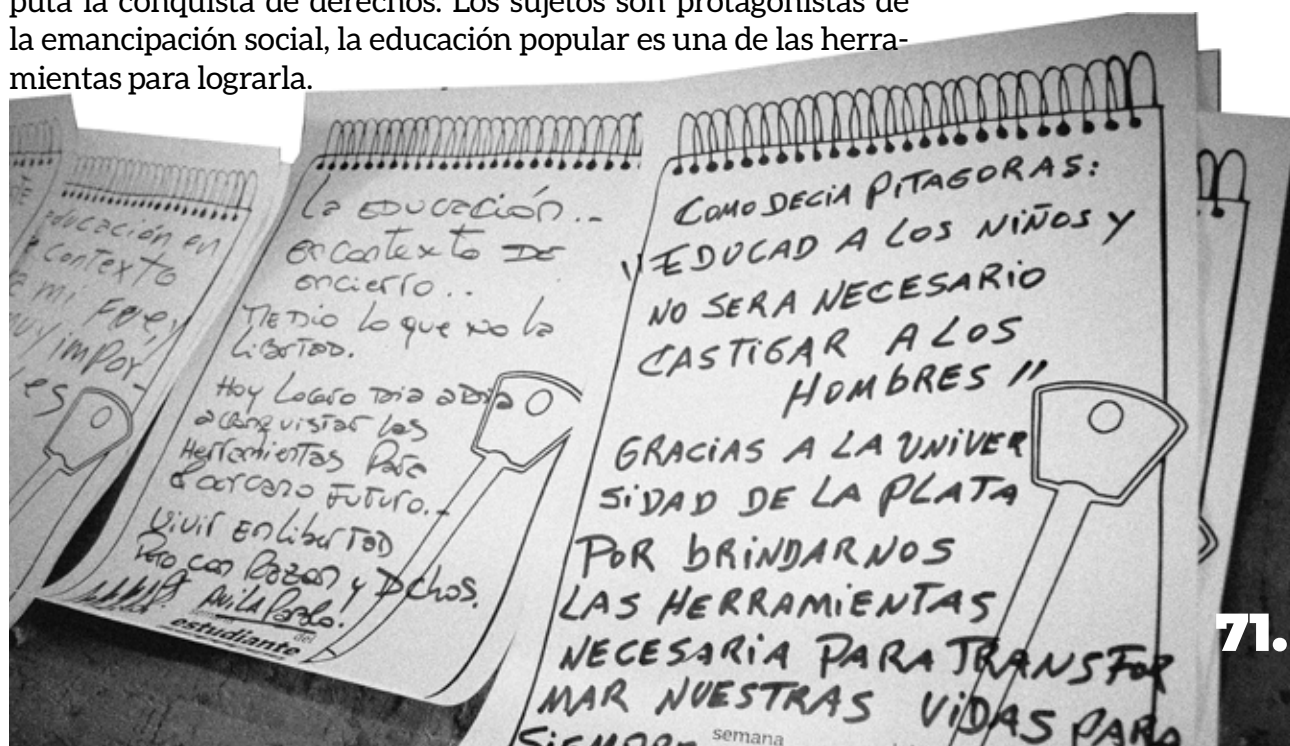 puta la conquista de derechos. Los sujetos son protagonistas de
la emancipación social, la educación popular es una de las herra-
mientas para lograrla.
educación en
contexto
mi
muy impor
es
La EDUCación..
en contexto DE
encierro..
ME DIO lo que no la
LiBerTAD.
Hoy Logro Dia a Dia
a conquistar las
Herramientas Para
el cercano FUTURO..
Vivir En liberTAD
Pero con Razon y Dchos.
Avila Pablo.
del
estudiante
COMO DECIA PITAGORAS:
"EDUCAD A LOS NIÑOS Y
NO SERA NECESARIO
CASTIGAR A LOS
HOMBRES"
GRACIAS A LA UNIVER
SIDAD DE LA PLATA
POR BRINDARNOS
LAS HERRAMIENTAS
NECESARIA PARA TRANSFOR
MAR NUESTRAS VIDAS PARA
SIEMPRE
semana
71.